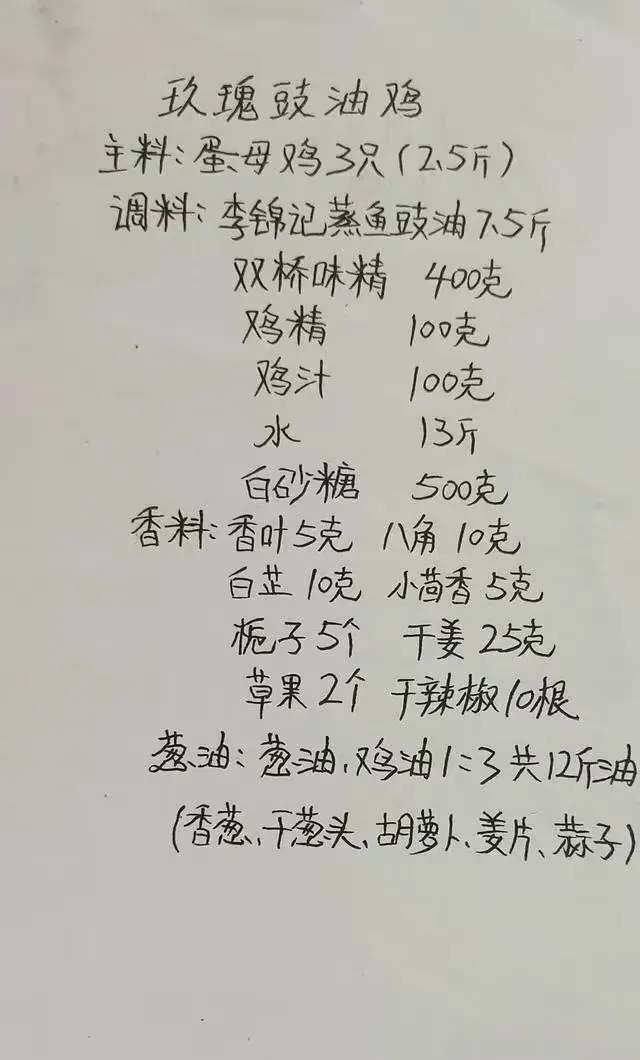 玫瑰豉油鸡
主料：蛋母鸡3只(2.5斤)
调料：李锦记蒸鱼豉油7.5斤
双桥味精 400克
鸡精 100克
鸡汁 100克
水 13斤
白砂糖 500克
香料：香叶5克 八角10克
白芷10克 小茴香5克
栀子5个 干姜25克
草果2个 干辣椒10根
葱油：葱油、鸡油1:3共12斤油
(香葱、干葱头、胡萝卜、姜片、蒜子)